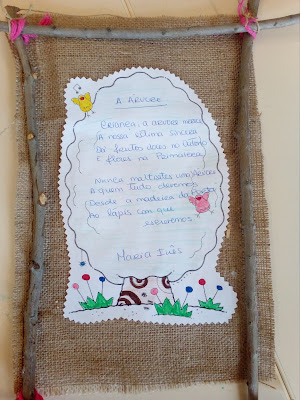 A ÁRVORE
Criança, a árvore mansa
A nossa amiga sincera
Dá frutos doces no Outono
E flores na Primavera.
Nunca maltrates uma árvore
A quem tudo devemos
Desde a madeira da
Ao lápis com que
escrevemos!
Maria Inês